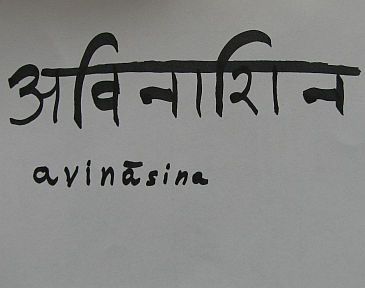 अविनाशिन
avināsina